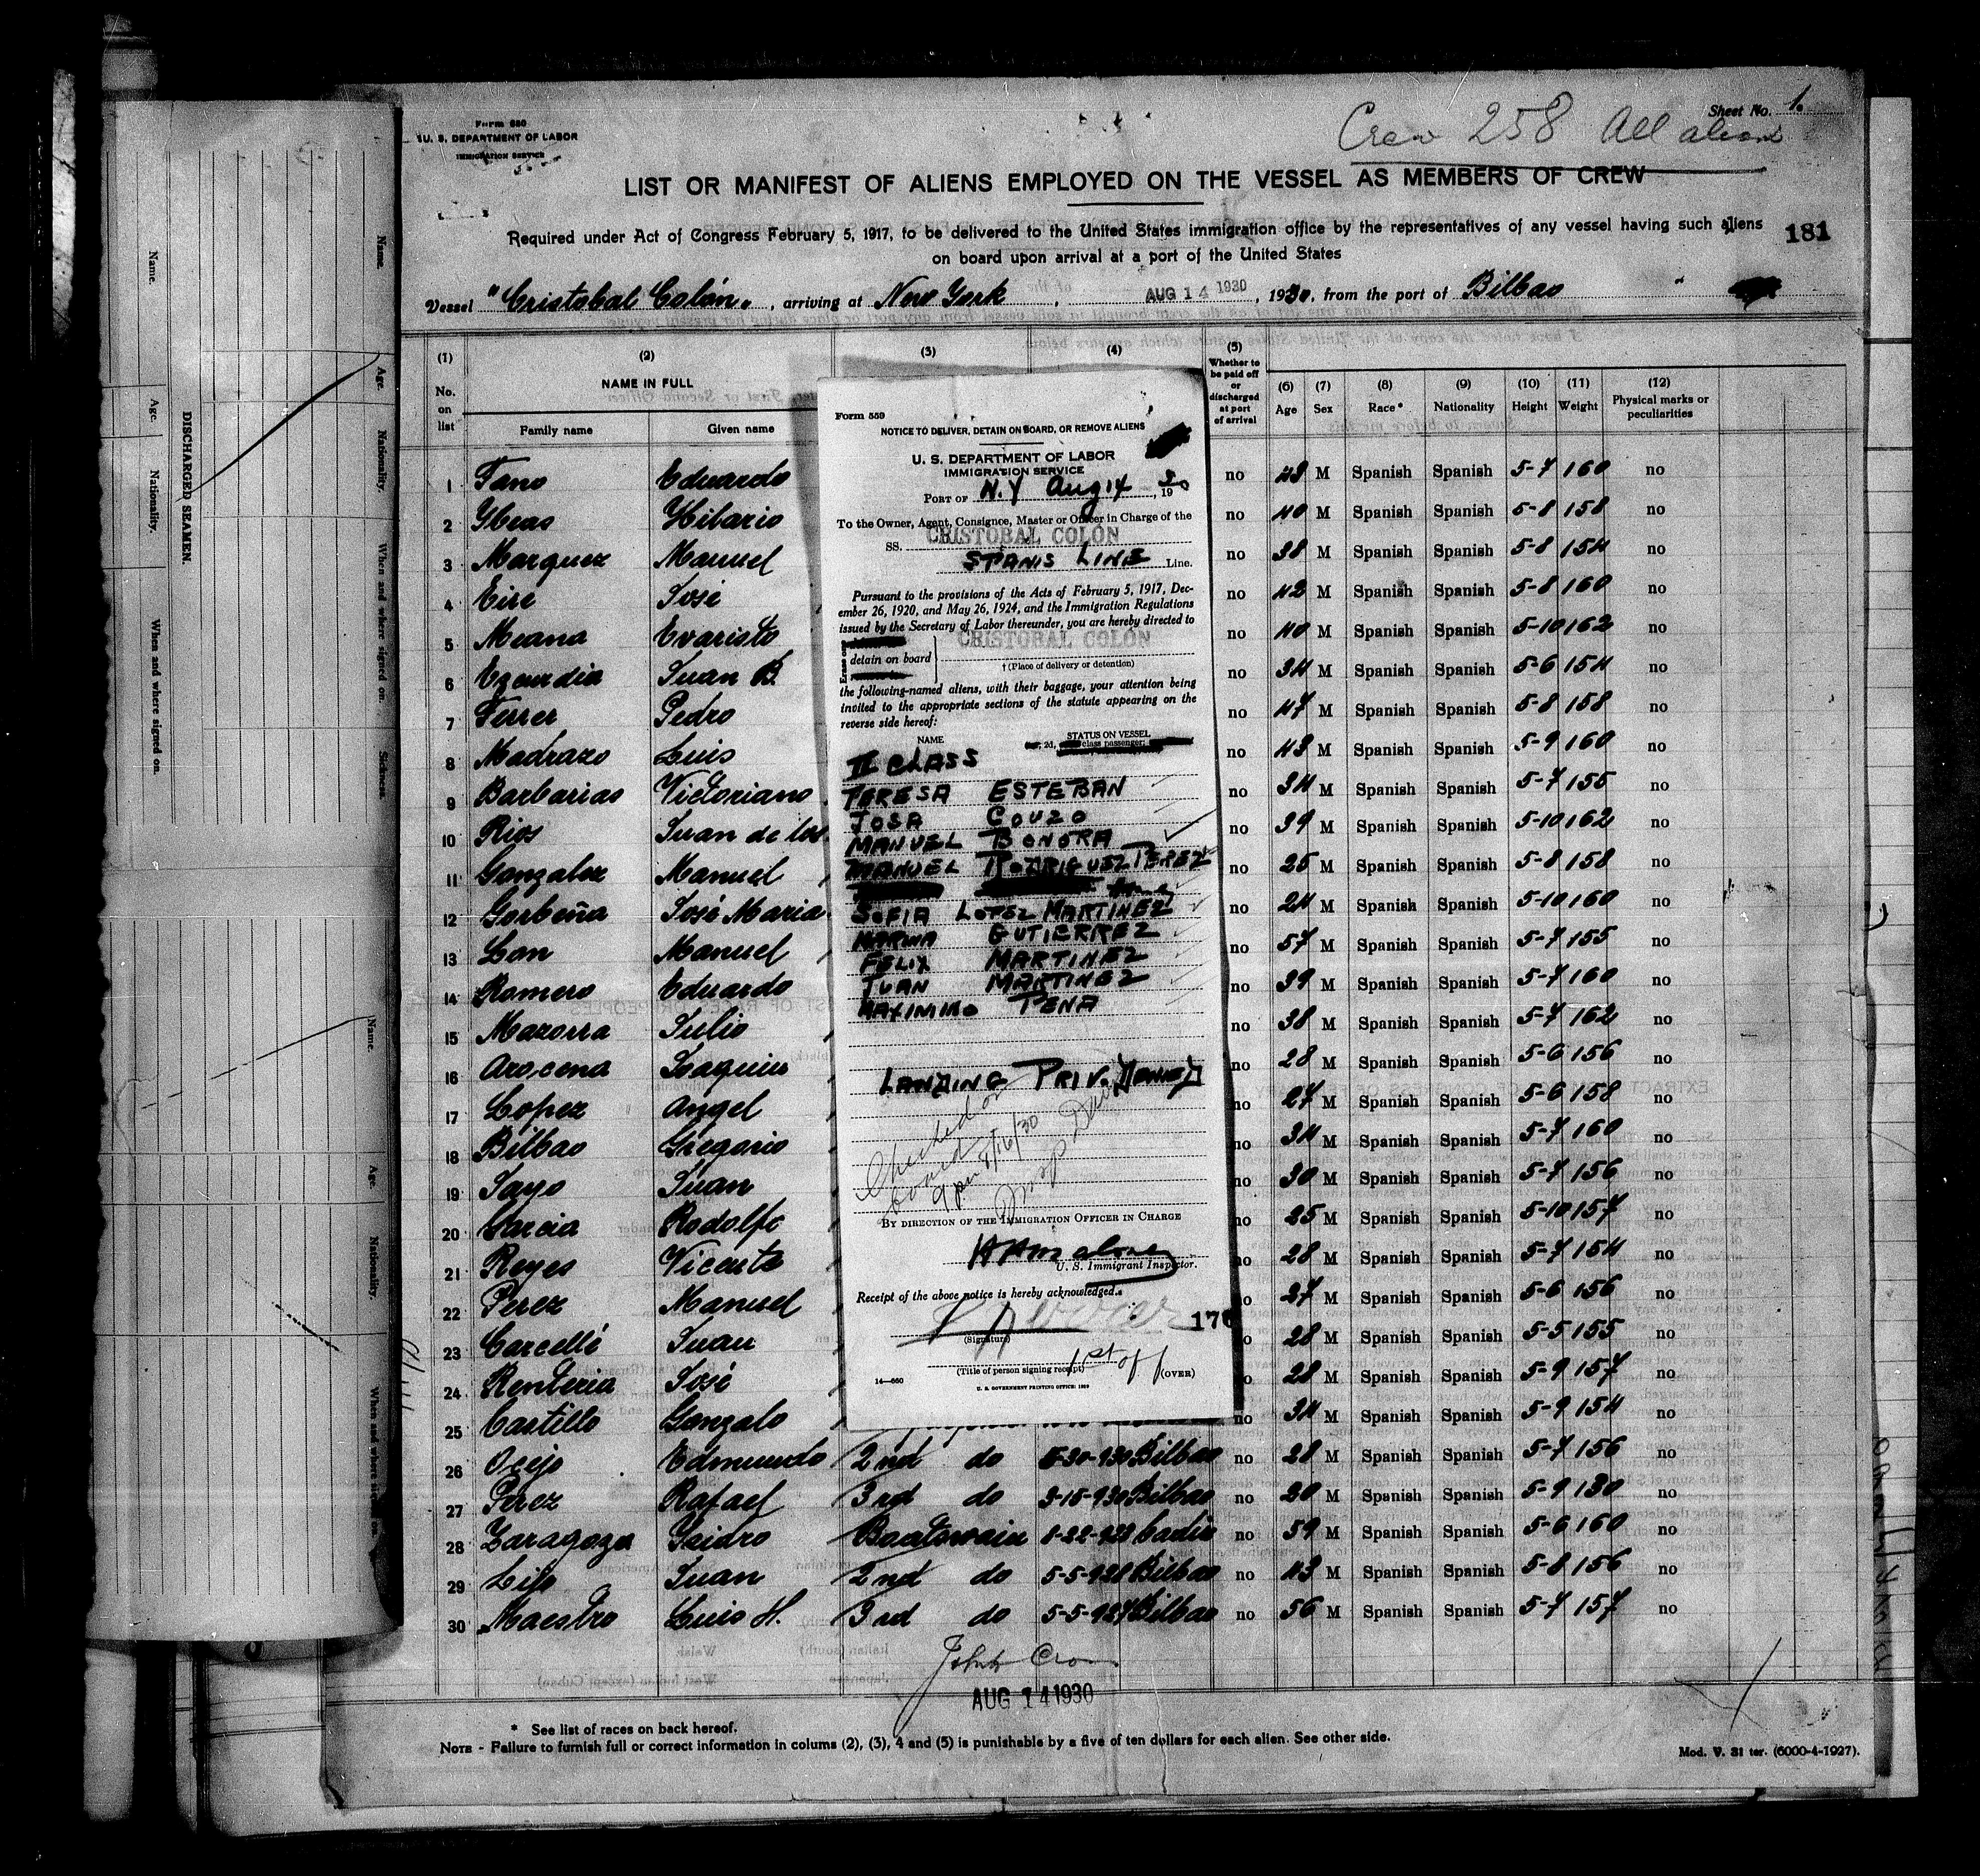 Form 680
U. S. DEPARTMENT OF LABOR
IMMIGRATION SERVICE
Sheet No. 1.
Crew 258 All aliens
LIST OR MANIFEST OF ALIENS EMPLOYED ON THE VESSEL AS MEMBERS OF CREW
Required under Act of Congress February 5, 1917, to be delivered to the United States immigration office by the representatives of any vessel having such aliens
on board upon arrival at a port of the United States
181
Vessel "Cristobal Colón", arriving at New York, AUG 14 1930, 1930, from the port of Bilbao
(1) (2) (3) (4) (5) (6) (7) (8) (9) (10) (11) (12)
No. on list NAME IN FULL Whether to be paid off or discharged at port of arrival Age Sex Race* Nationality Height Weight Physical marks or peculiarities
Family name Given name
1 Fano Eduardo no 48 M Spanish Spanish 5-7 160 no
2 Ybeas Hilario no 40 M Spanish Spanish 5-8 158 no
3 Marquez Manuel no 38 M Spanish Spanish 5-8 154 no
4 Eire José no 42 M Spanish Spanish 5-8 160 no
5 Meana Evaristo no 40 M Spanish Spanish 5-10 162 no
6 Egaurdia Juan B. no 34 M Spanish Spanish 5-6 154 no
7 Ferrer Pedro no 47 M Spanish Spanish 5-8 158 no
8 Madrazo Luis no 43 M Spanish Spanish 5-9 160 no
9 Barbarias Victoriano no 34 M Spanish Spanish 5-7 155 no
10 Rios Juan de los no 39 M Spanish Spanish 5-10 162 no
11 Gonzalez Manuel no 25 M Spanish Spanish 5-8 158 no
12 Gorbeña José Maria no 24 M Spanish Spanish 5-10 160 no
13 Lan Manuel no 57 M Spanish Spanish 5-7 155 no
14 Romero Eduardo no 39 M Spanish Spanish 5-7 160 no
15 Mazorra Julio no 38 M Spanish Spanish 5-7 162 no
16 Arocena Joaquin no 28 M Spanish Spanish 5-6 156 no
17 Lopez Angel no 27 M Spanish Spanish 5-6 158 no
18 Bilbao Gregorio no 34 M Spanish Spanish 5-7 160 no
19 Sayo Juan no 30 M Spanish Spanish 5-7 156 no
20 Garcia Rodolfo no 25 M Spanish Spanish 5-10 157 no
21 Reyes Vicente no 28 M Spanish Spanish 5-7 154 no
22 Perez Manuel no 27 M Spanish Spanish 5-6 156 no
23 Carcellé Juan no 28 M Spanish Spanish 5-5 155 no
24 Renteria José no 28 M Spanish Spanish 5-9 157 no
25 Castillo Gonzalo no 34 M Spanish Spanish 5-9 154 no
26 Ocejo Edmundo 2nd do 5-30-930 Bilbao no 28 M Spanish Spanish 5-7 156 no
27 Perez Rafael 3rd do 3-15-930 Bilbao no 20 M Spanish Spanish 5-9 130 no
28 Zaragoza Isidro Boatswain 1-22-923 Cadiz no 59 M Spanish Spanish 5-6 160 no
29 Lijo Juan 2nd do 5-5-928 Bilbao no 43 M Spanish Spanish 5-8 156 no
30 Maestro Luis H. 3rd do 5-5-927 Bilbao no 56 M Spanish Spanish 5-7 157 no
AUG 14 1930
* See list of races on back hereof.
NOTE - Failure to furnish full or correct information in colums (2), (3), 4 and (5) is punishable by a five of ten dollars for each alien. See other side.
Mod. V. 31 ter. (6000-4-1927).
Form 559
NOTICE TO DELIVER, DETAIN ON BOARD, OR REMOVE ALIENS
U. S. DEPARTMENT OF LABOR
IMMIGRATION SERVICE
PORT OF N.Y Aug 14, 1930
To the Owner, Agent, Consignee, Master or Officer in Charge of the
SS. CRISTOBAL COLON
SPANIS LINE Line.
Pursuant to the provisions of the Acts of February 5, 1917, Dec-
ember 26, 1920, and May 26, 1924, and the Immigration Regulations
issued by the Secretary of Labor thereunder, you are hereby directed to
detain on board CRISTOBAL COLON
† (Place of delivery or detention)
the following-named aliens, with their baggage, your attention being
invited to the appropriate sections of the statute appearing on the
reverse side hereof:
NAME STATUS ON VESSEL
2d, class passenger;
II CLASS
TERESA ESTEBAN
JOSA COUZO
MANUEL BONORA
MANUEL RODRIGUEZ PEREZ
SOFIA LOPEZ MARTINEZ
MARINA GUTIERREZ
FELIX MARTINEZ
JUAN MARTINEZ
MAXIMINO PENA
LANDING PRIV. DENIED
Checked on
board
9 pm 8/16/30
BY DIRECTION OF THE IMMIGRATION OFFICER IN CHARGE
U. S. Immigrant Inspector.
Receipt of the above notice is hereby acknowledged.
176
(Signature)
1st off
(Title of person signing receipt)
(OVER)
14—660
U. S. GOVERNMENT PRINTING OFFICE: 1929
DISCHARGED SEAMEN.
Name. Age. Nationality. When and where signed on.
Name. Age. Nationality. When and where signed on. Sickness.
Name. Age. Nationality. When and where signed on.